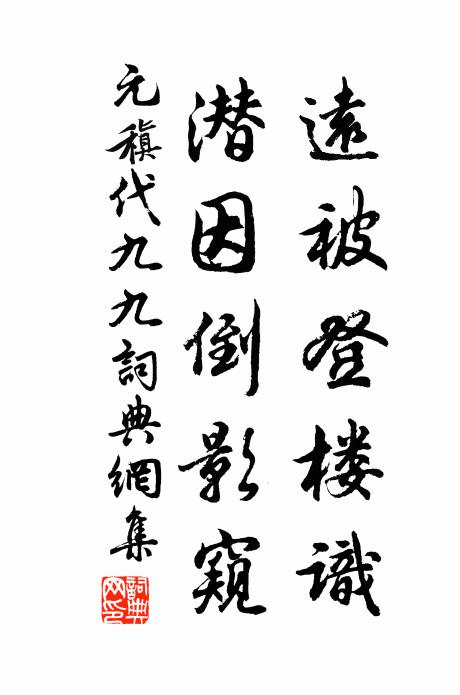 遠被登楼識
潜因倒影窺
元稹代九九詞典網集
詞典网印